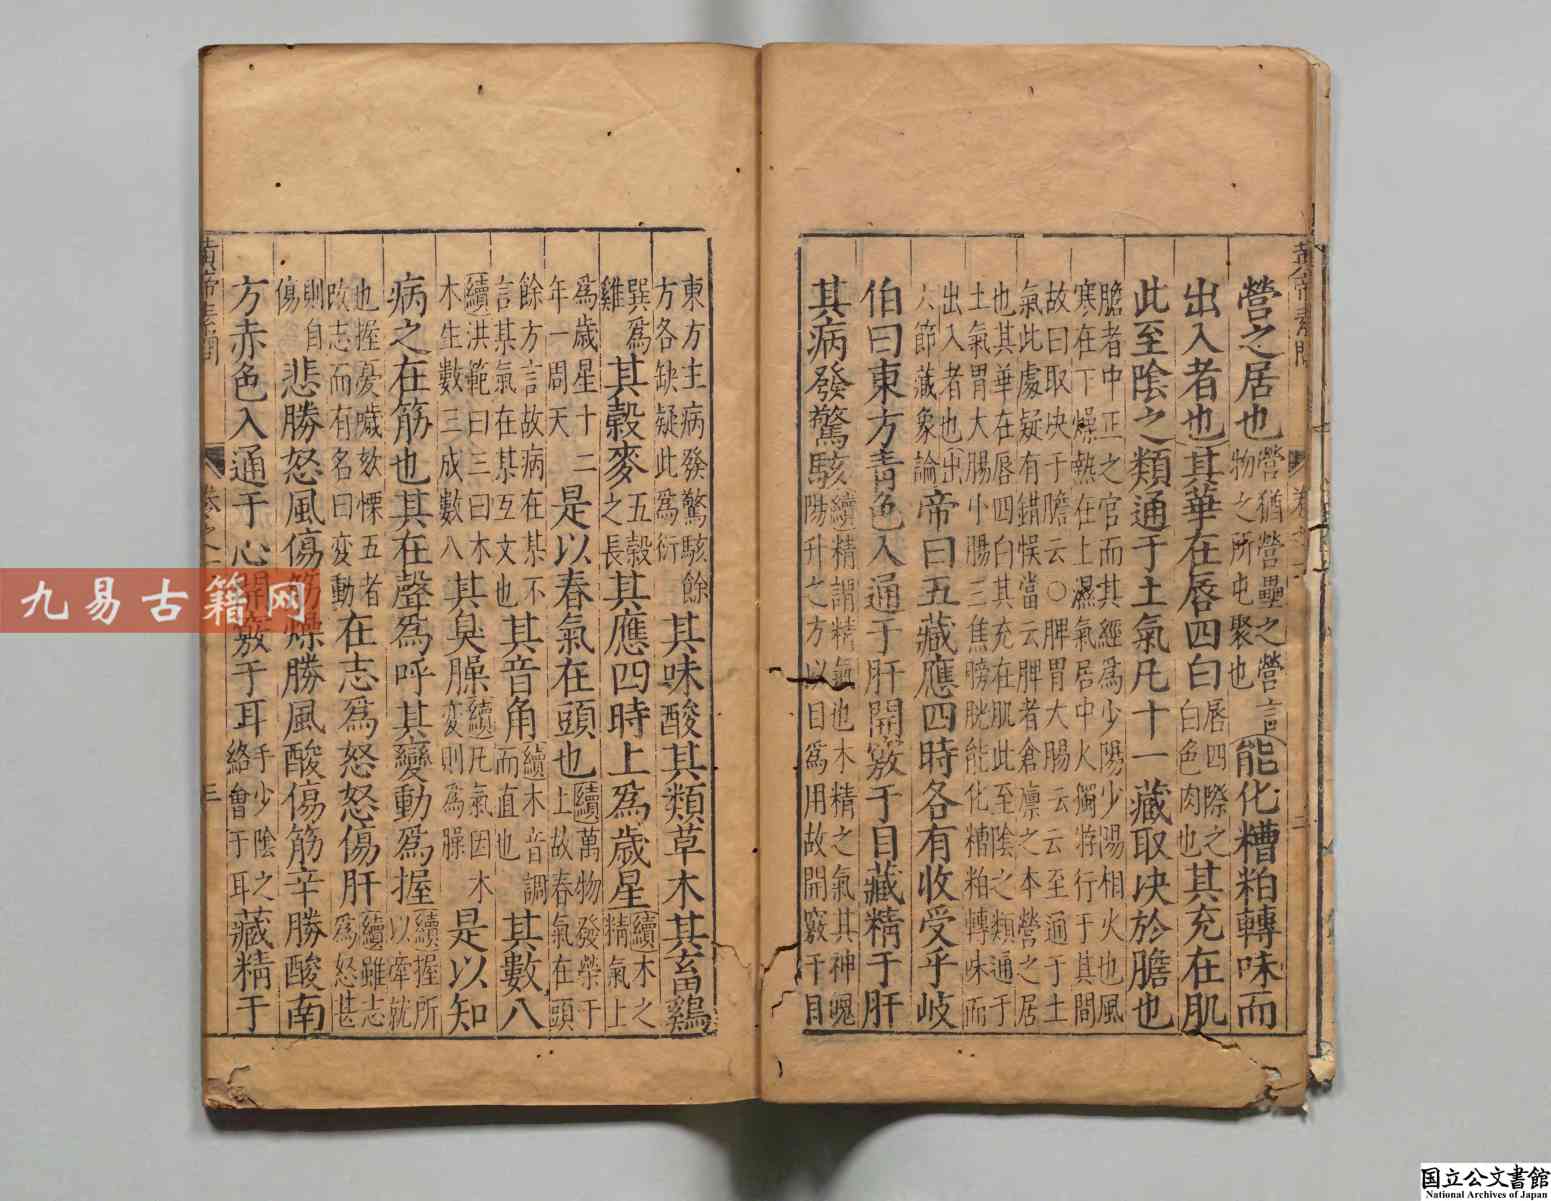 營之居也營猶營壘之營言物之所屯聚也能化糟粕轉味而
出入者也其華在唇四白唇四際之白色肉也其充在肌
此至陰之類通于土氣凡十一藏取决於膽也
膽者中正之官而其經爲少陽少陽相火也風
寒在下燥熱在上濕氣居中火獨遊行于其間
故曰取决于膽云○脾胃大腸云云至通于土
氣此處疑有錯悞當云脾者倉廩之本營之居
也其華在唇四白其充在肌此至陰之類通于
土氣胃大腸小腸三焦膀胱能化糟粕轉味而
出入者也出六節藏象論帝曰五藏應四時各有收受乎岐
伯曰東方青色入通于肝開竅于目藏精于肝
其病發驚駭續精謂精氣也木精之氣其神魄陽升之方以目爲用故開竅于目
東方主病發驚駭餘方各缺疑此爲衍其味酸其類草木其畜鷄
巽爲雞其穀麥五穀之長其應四時上爲歲星續木之精氣上
爲歲星十二年一周天是以春氣在頭也續萬物發榮于上故春氣在頭
餘方言故病在某不言某氣在某互文也其音角續木音調而直也其數八
續洪範曰三曰木木生數三成數八其臭臊續凡氣因木変則爲臊是以知
病之在筋也其在聲爲呼其變動爲握續握所以牽就
也握憂噦欬慄五者改志而有名曰変動在志爲怒怒傷肝續雖志爲怒甚
則自傷悲勝怒風傷筋燥勝風酸傷筋辛勝酸南
方赤色入通于心開竅于耳手少陰之絡會于耳藏精于
黄帝素問
三
九易古籍网
国立公文書館
National Archives of Japan